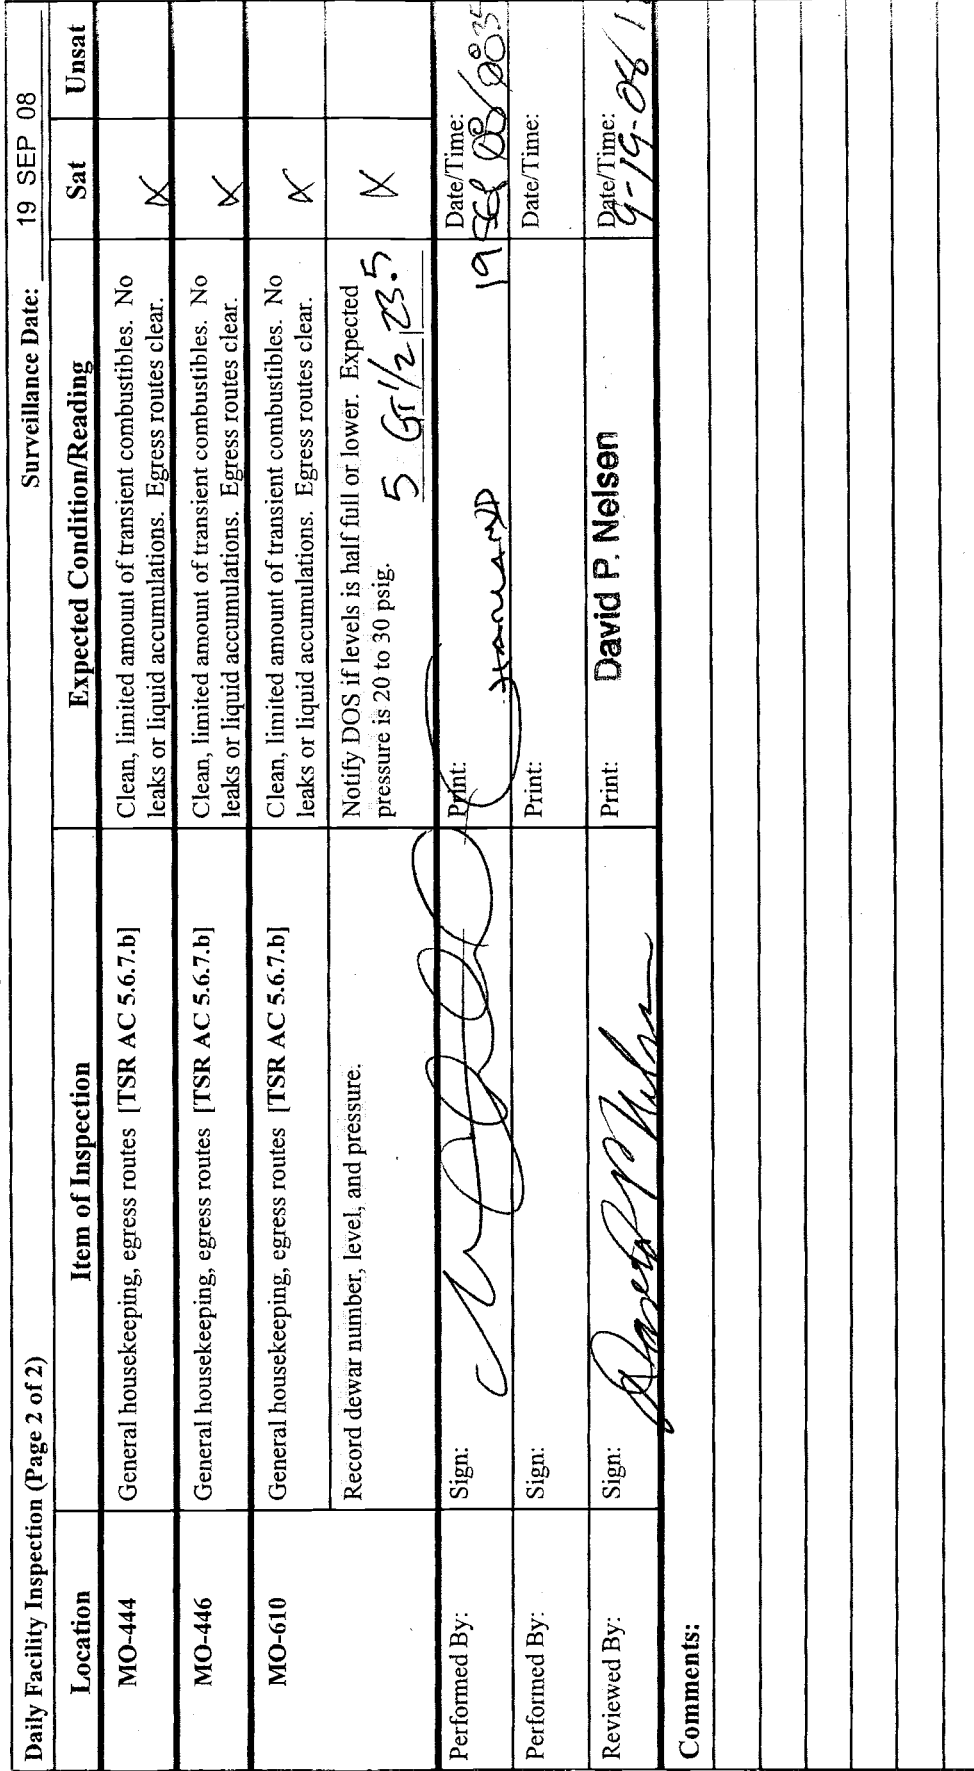 Daily Facility Inspection (Page 2 of 2) Surveillance Date: 19 SEP 08
Location Item of Inspection Expected Condition/Reading Sat Unsat
MO-444 General housekeeping, egress routes [TSR AC 5.6.7.b] Clean, limited amount of transient combustibles. No X
leaks or liquid accumulations. Egress routes clear.
MO-446 General housekeeping, egress routes [TSR AC 5.6.7.b] Clean, limited amount of transient combustibles. No X
leaks or liquid accumulations. Egress routes clear.
MO-610 General housekeeping, egress routes [TSR AC 5.6.7.b] Clean, limited amount of transient combustibles. No X
leaks or liquid accumulations. Egress routes clear.
Record dewar number, level, and pressure. Notify DOS if levels is half full or lower. Expected X
pressure is 20 to 30 psig. 5 GT 1/2 23.5
Performed By: Sign: Print: Date/Time:
19 SEP 08/0035
Performed By: Sign: Print: Date/Time:
Reviewed By: Sign: David P Nelsen Print: David P. Nelsen Date/Time:
9-19-08/
Comments: